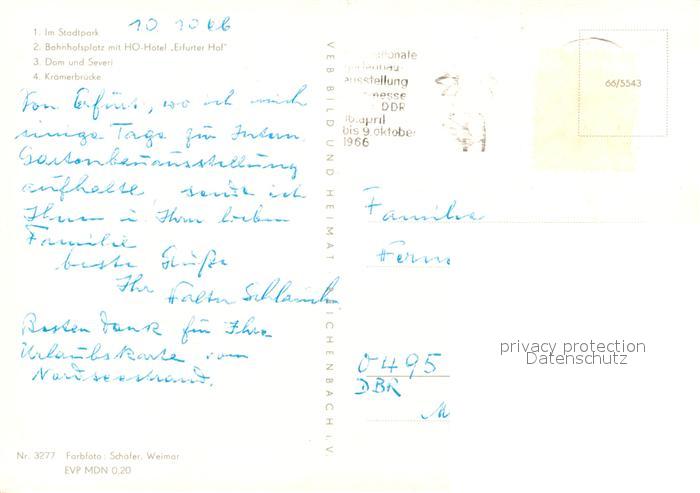 10.10.66
1. Im Stadtpark
2. Bahnhofsplatz mit HO-Hotel „Erfurter Hof"
3. Dom und Severi
4. Krämerbrücke
Von Erfurt, wo ich mich
einige Tage zur Intern.
Gartenbauausstellung
aufhalte sende ich
Ihnen u. Ihrer lieben
Familie
beste Grüße
Ihr
Besten Dank für Ihre
Urlaubskarte vom
Nordseestrand.
Nr. 3277 Farbfoto: Schäfer, Weimar
EVP MDN 0,20
VEB BILD UND HEIMAT REICHENBACH i. V.
ausstellung
messe
DDR
april
bis 9. oktober
1966
66/5543
Familie
0495
DBR
M
privacy protection
Datenschutz